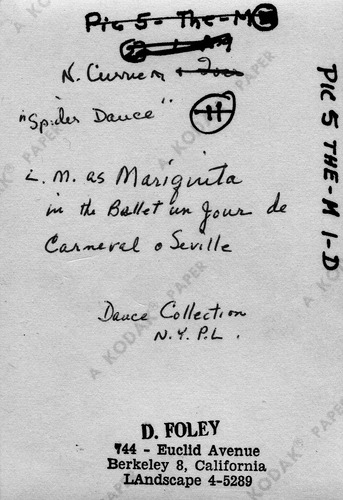 Pic 5 - The - M
N. Currier
"Spider Dance" 11
L. M. as Mariquita
in the Ballet un Jour de
Carneval o Seville
Dance Collection
N.Y.P.L.
D. FOLEY
744 - Euclid Avenue
Berkeley 8, California
LAndscape 4-5289
PIC 5 THE-M 1-D
A KODAK® PAPER
A KODAK® PAPER
A KODAK® PAPER
A KODAK® PAPER